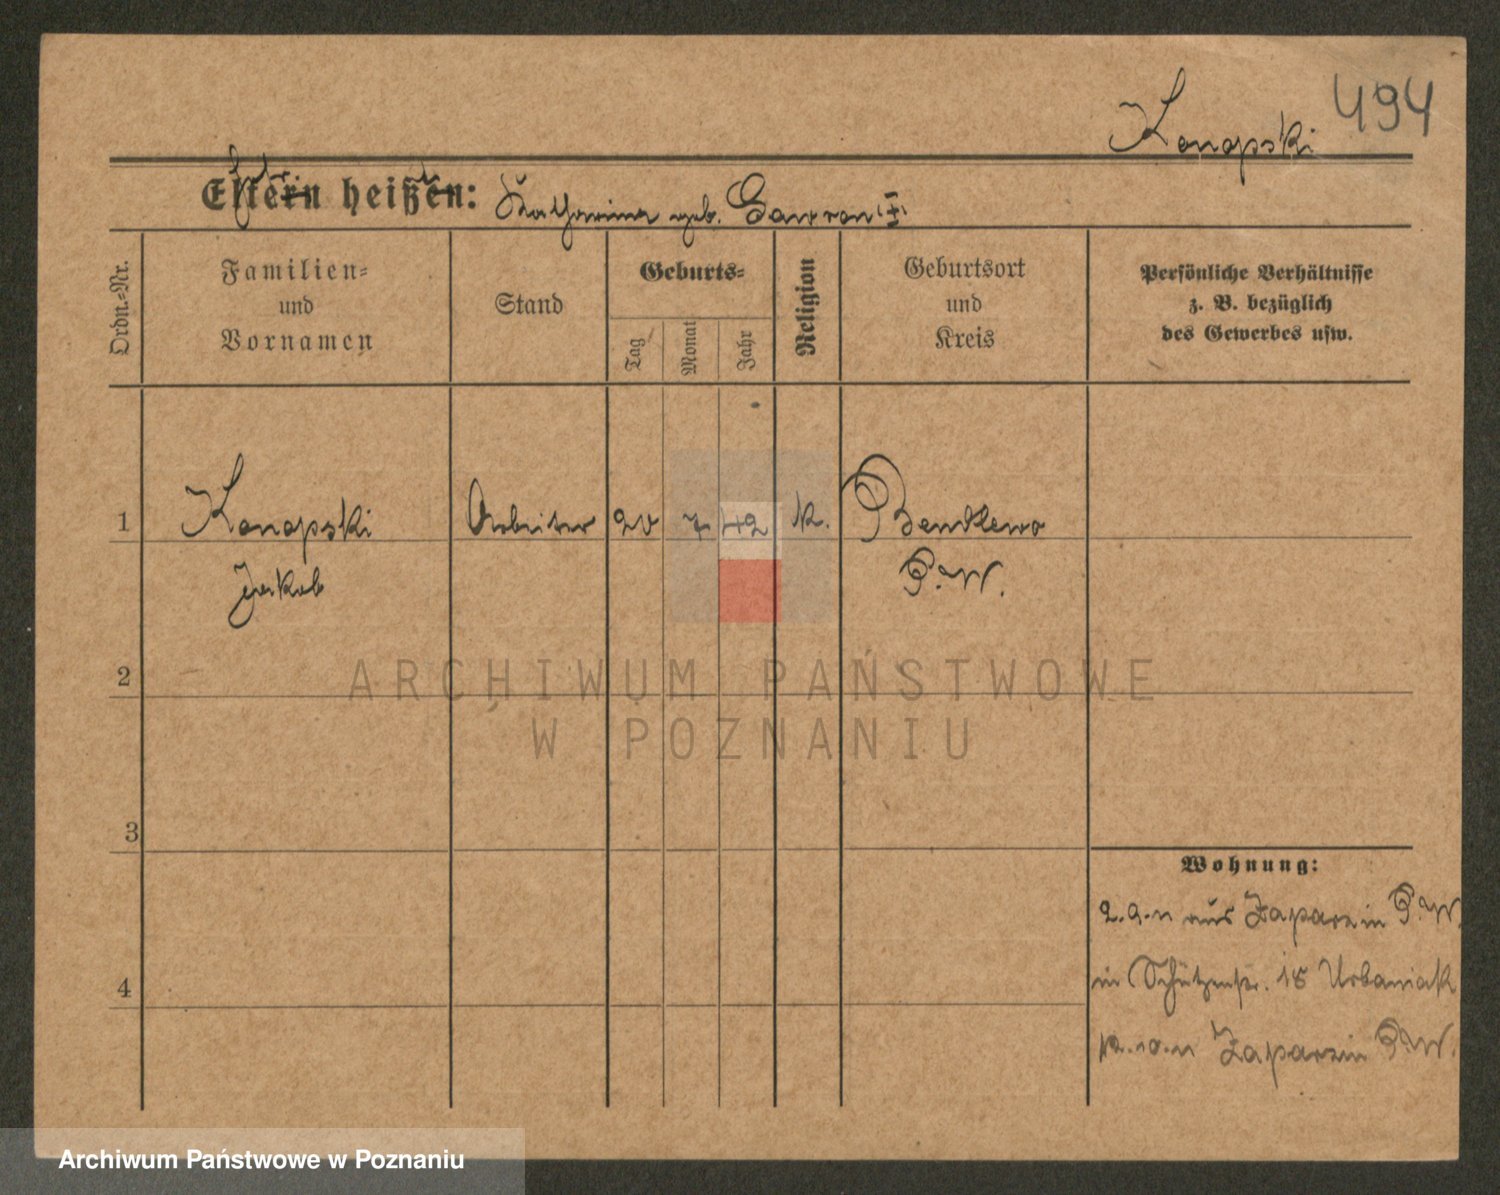 494
Konopski
Eltern heißen: Katharina geb. Gawron
Ordn.-Nr.
Familien-
und
Vornamen
Stand
Geburts-
Tag
Monat
Jahr
Religion
Geburtsort
und
Kreis
Persönliche Verhältnisse
z. B. bezüglich
des Gewerbes usw.
1 Konopski Arbeiter 20 7 42 k. Bendlewo
Jakob P.W.
2
3
4
Wohnung:
aus Zaparzin P.W.
in Schützenstr. 15 Urbaniak
Zaparzin P.W.
ARCHIWUM PAŃSTWOWE
W POZNANIU
Archiwum Państwowe w Poznaniu